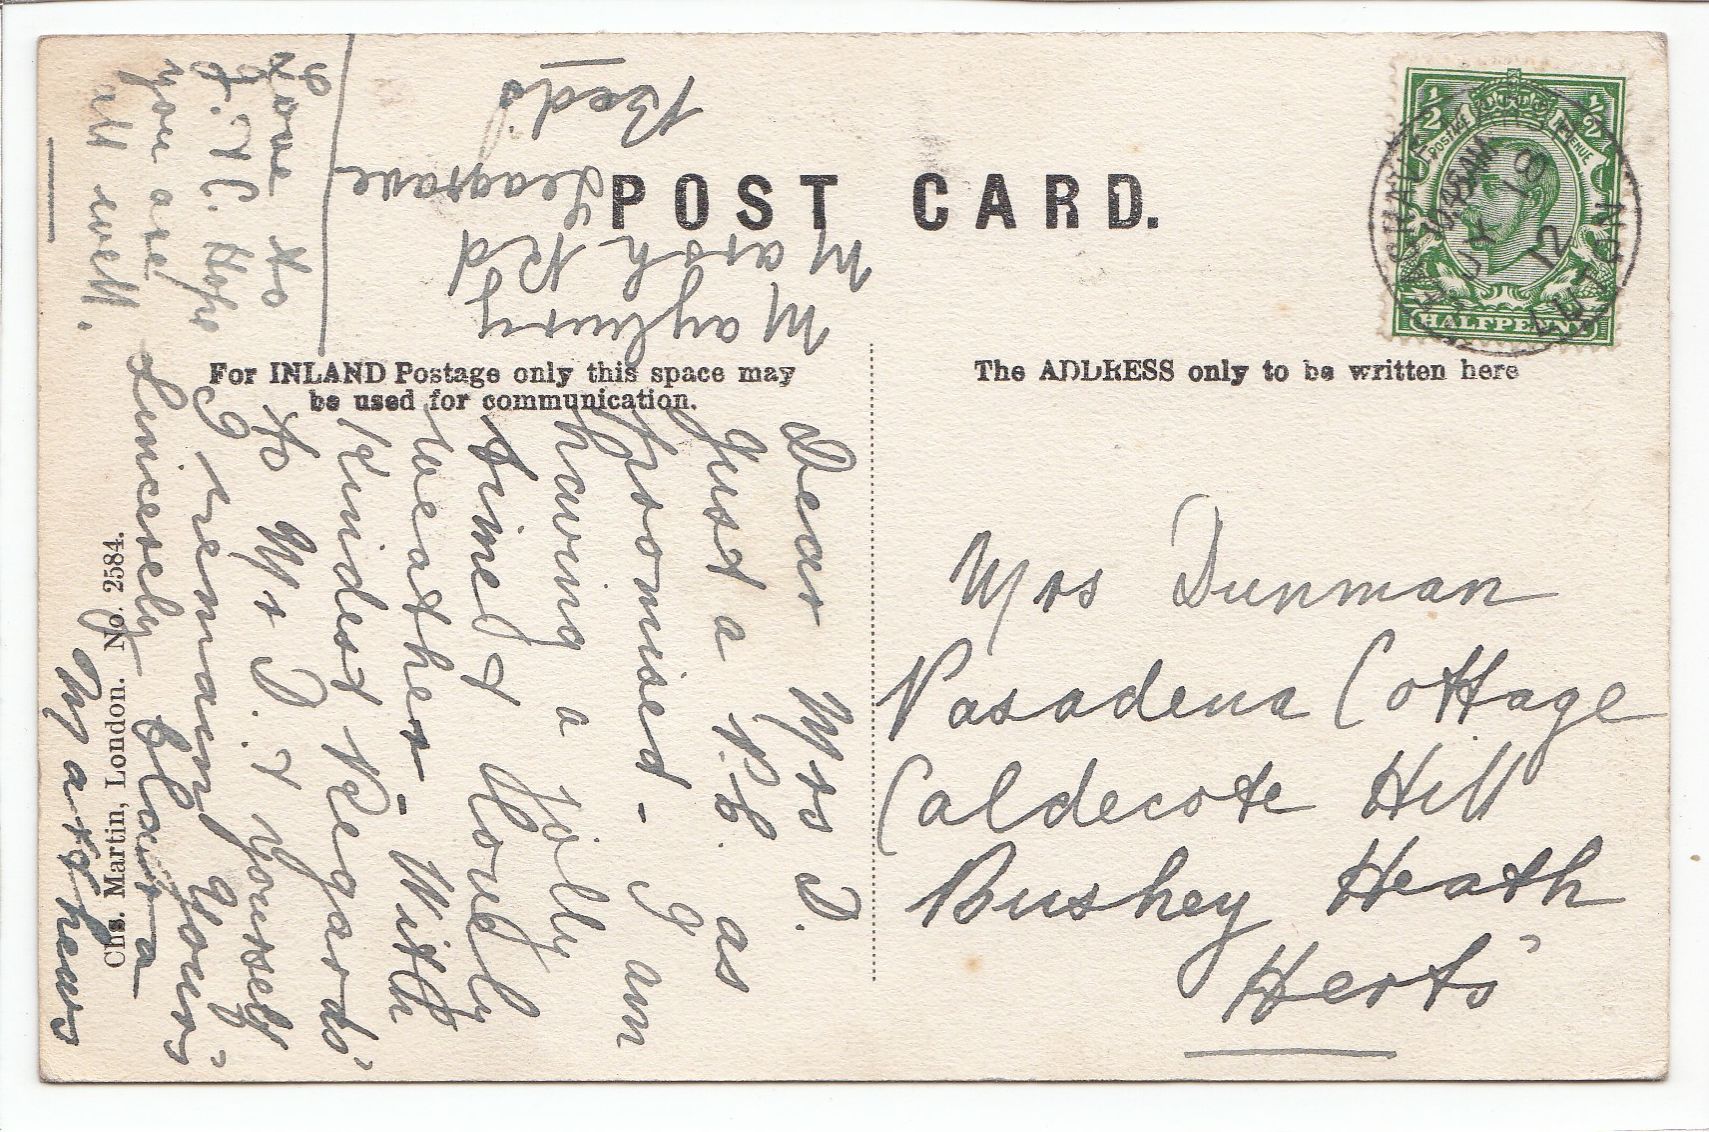 POST CARD.
For INLAND Postage only this space may
be used for communication.
The ADDRESS only to be written here
Chs. Martin, London. No. 2584.
½ ½
POSTAGE REVENUE
HALFPENNY
10.45 AM
JY 18
12
LUTON
Mrs Dunman
Pasadena Cottage
Caldecote Hill
Bushey Heath
Herts
Maybury
Marsh Rd
Leagrave
Beds
Dear Mrs D.
Just a P.C. as
promised - I am
having a jolly
time & lovely
weather - With
Kindest Regards
to Mr D. & yourself
I remain Yours
Sincerely Clara
Mathews
Love to
J. & C. Hope
you are
all well.